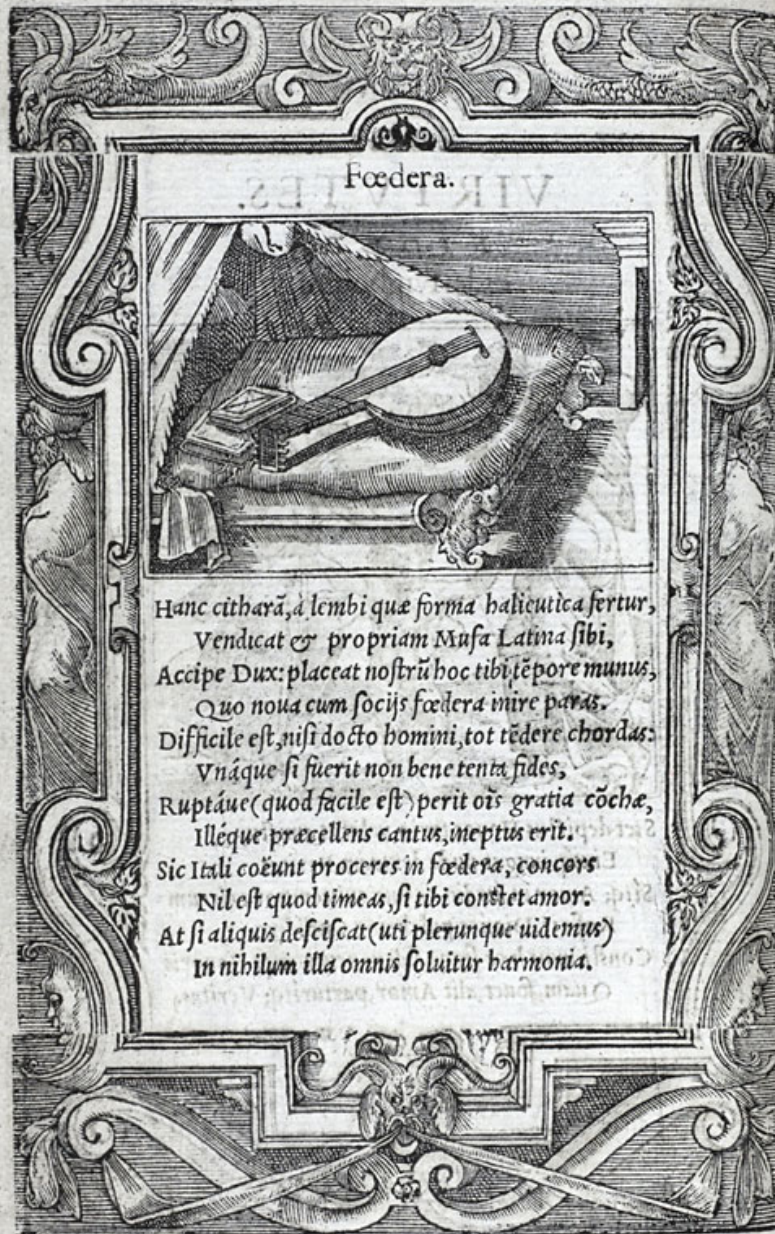 Fœdera.
Hanc citharā, à lembi quæ forma halieutica fertur,
Vendicat & propriam Musa Latina sibi,
Accipe Dux: placeat nostrū hoc tibi, tēpore munus,
Quo noua cum socijs fœdera inire paras.
Difficile est, nisi docto homini, tot tēdere chordas:
Vnáque si fuerit non bene tenta fides,
Ruptáue (quod facile est) perit oīs gratia cōchæ,
Illéque præcellens cantus, ineptus erit.
Sic Itali coëunt proceres in fœdera, concors
Nil est quod timeas, si tibi constet amor.
At si aliquis desciscat (uti plerunque uidemus)
In nihilum illa omnis soluitur harmonia.